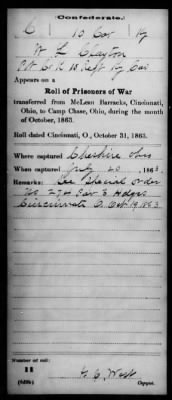 Confederate.
C 10 Cav Ky
W L Clayton
Pvt Co K 10 Regt Ky Cav
Appears on a
Roll of Prisoners of War
transferred from McLean Barracks, Cincinnati,
Ohio, to Camp Chase, Ohio, during the month
of October, 1863.
Roll dated Cincinnati, O., October 31, 1863.
Where captured Cheshire Ohio
When captured July 20, 1863.
Remarks: See Special Order
No 274 Par 3 Hdqrs
Cincinnati O. Oct 19, 1863
Number of roll:
11
(639b)
Copyist.